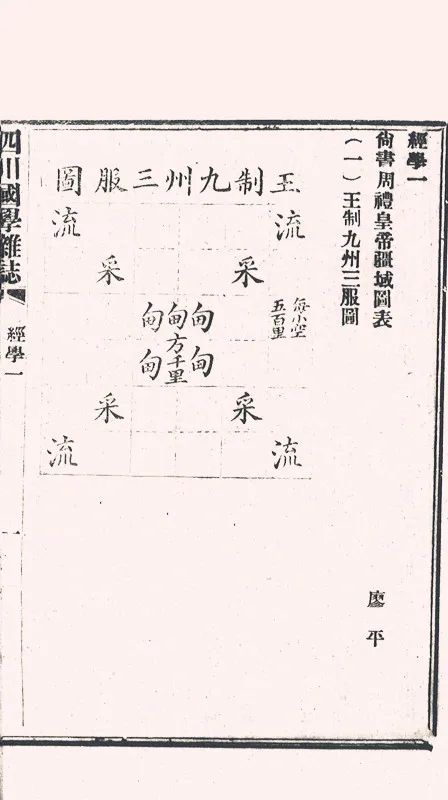 經學一
尙書周禮皇帝疆域圖表
(一)王制九州三服圖
廖平
王制九州三服圖
流 流
采 采
每小空
五百里
甸甸甸
方千里
甸 甸
采 采
流 流
四川國學雜誌
經學一
一